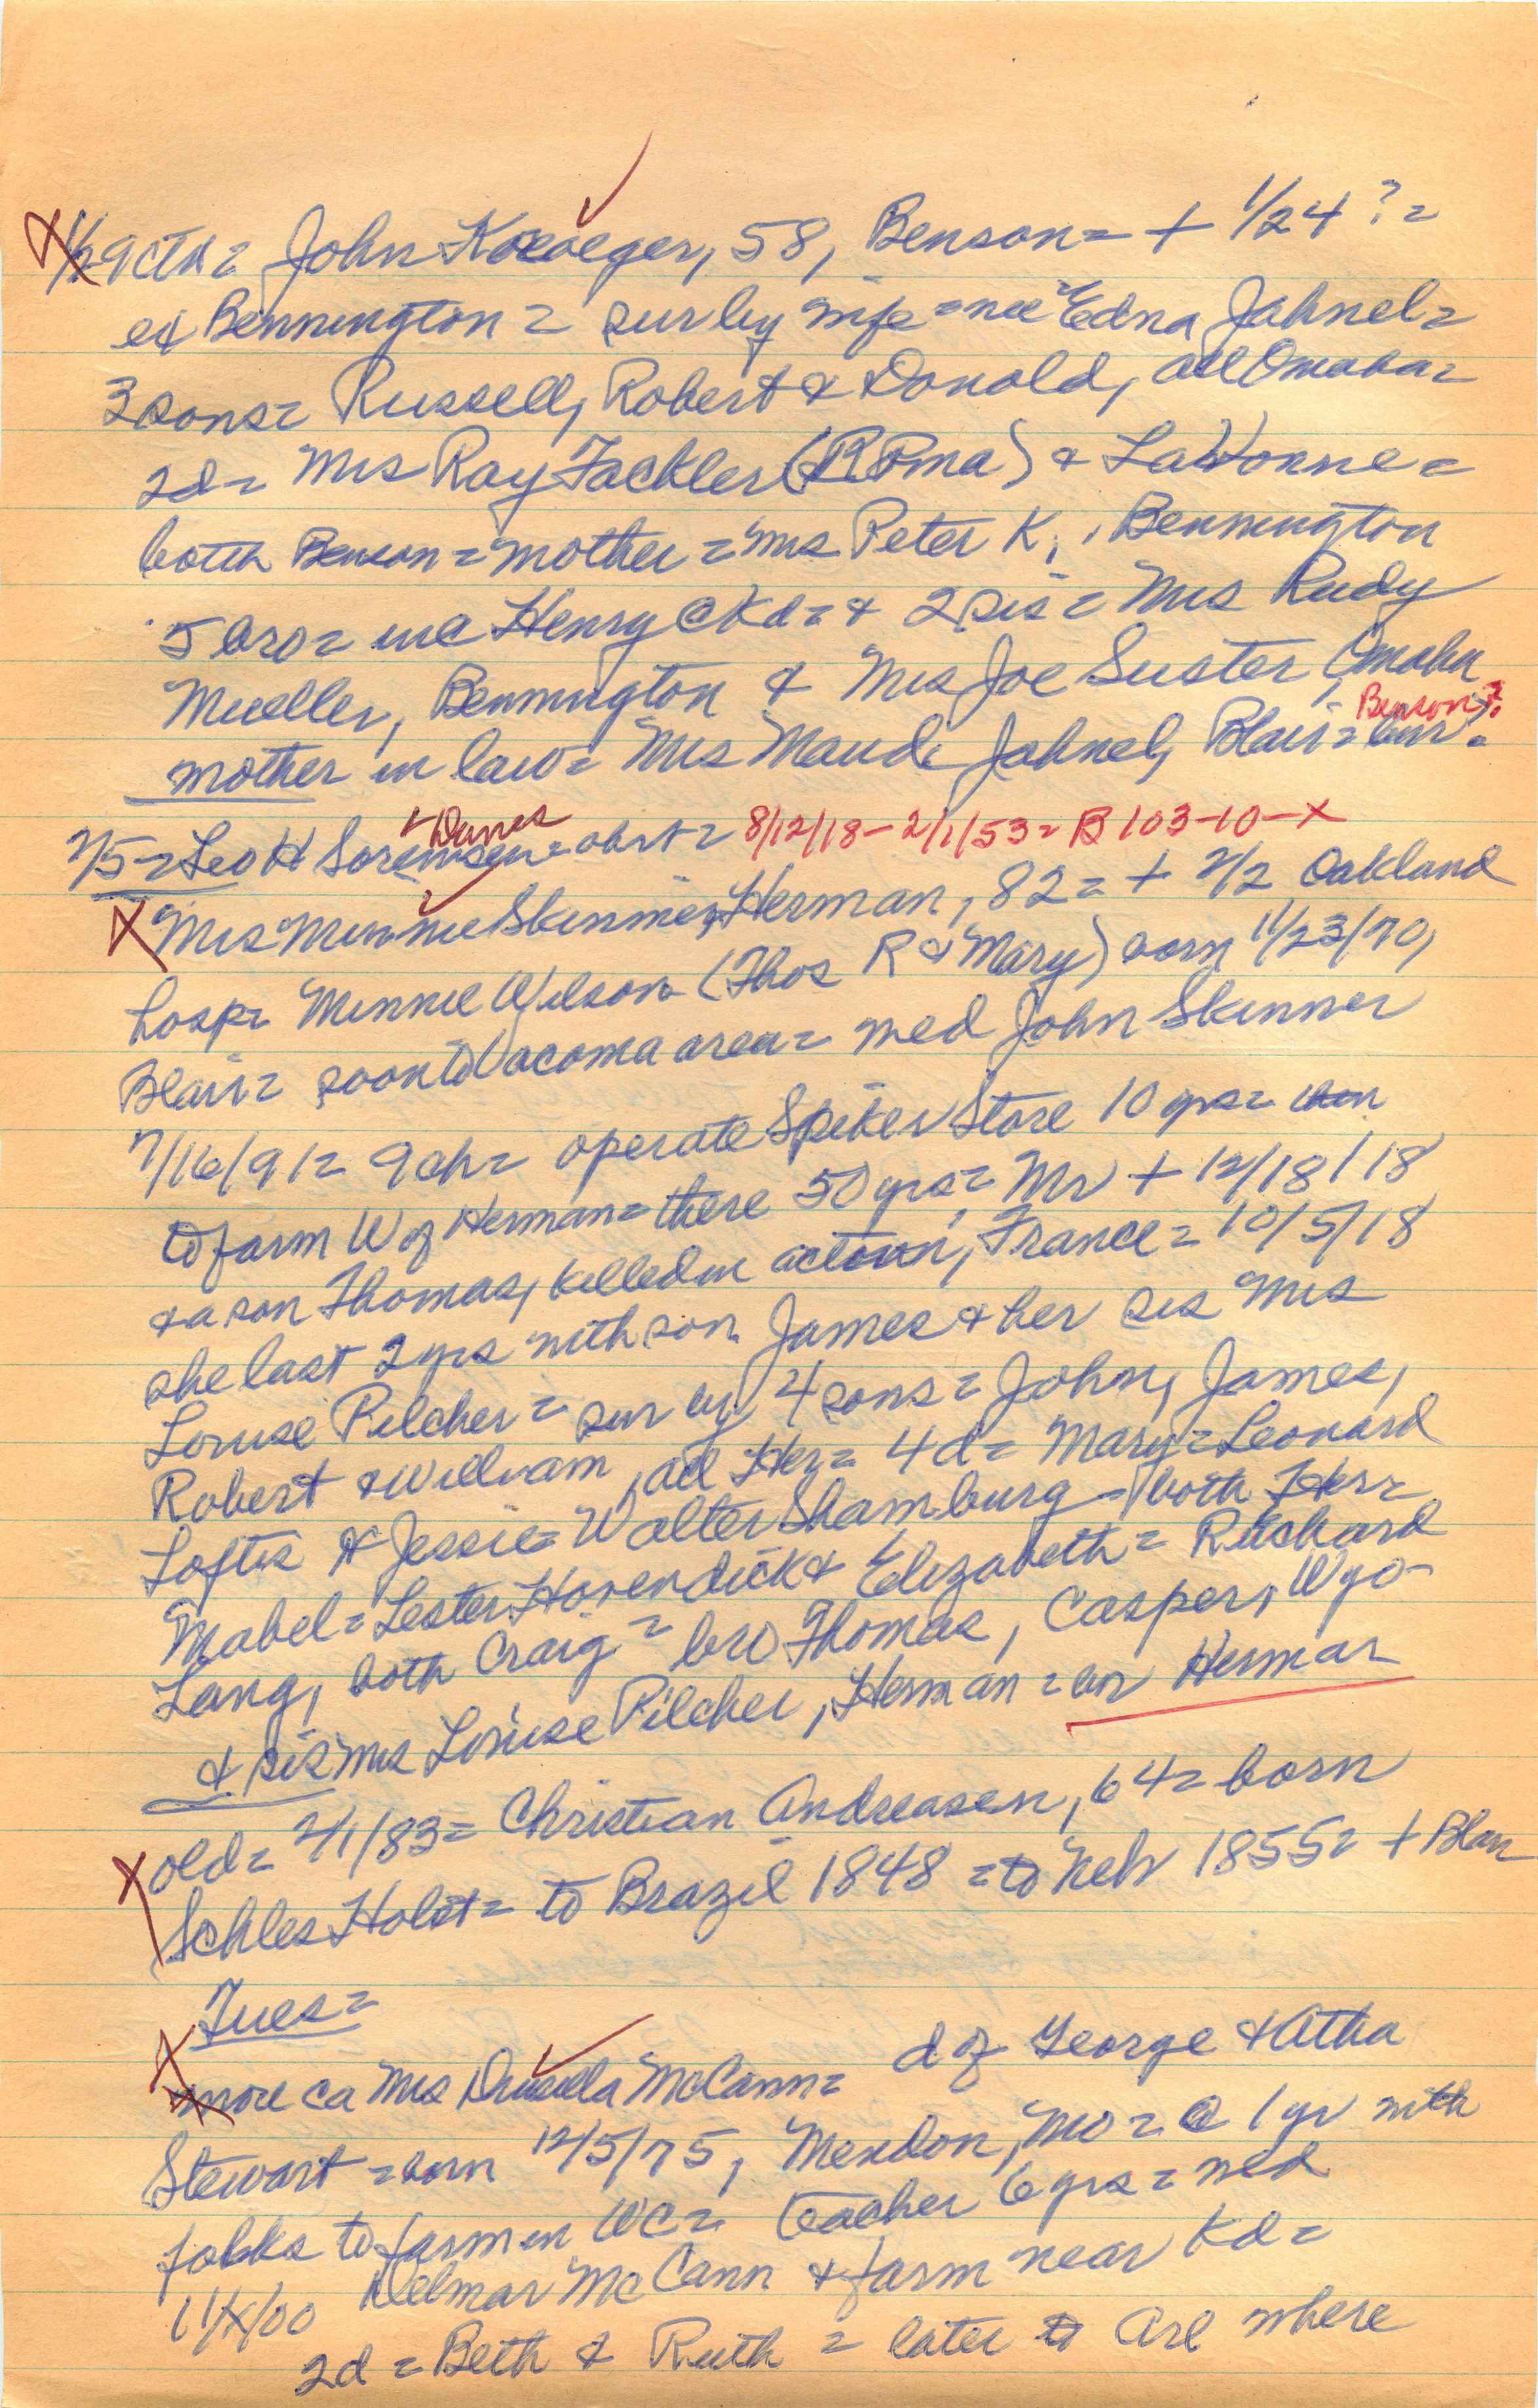 1/29 ctz= John Kroeger, 58, Benson= + 1/24 ?=
ex Bennington = sur by wife =nee Edna Jahnel=
3 sons= Russell, Robert & Donald, all Omaha=
2d= Mrs Ray Fackler ( ) & LaVonne=
both Benson= mother = Mrs Peter K., Bennington
5 bro= inc Henry C Kd= & 2 sis= Mrs Rudy
Mueller, Bennington & Mrs Joe Suster, Omaha
mother in law= Mrs Maude Jahnel, Blair= bur=
Benson?
Danes
2/5 = Leo H Sorensen= obit= 8/12/18-2/1/53= B 103-10-X
X Mrs Minnie Skinner, Herman, 82= + 2/2 Oakland
hosp= Minnie Wilson (Thos R & Mary) born 11/23/70,
Blair= soon to Vacoma area= med John Skinner
7/16/91= 9ch= operate Spiker Store 10 yrs= then
to farm W of Herman= there 50 yrs= Mr + 12/18/18
& a son Thomas, killed in action, France= 10/5/18
she last 2 yrs with son James & her sis Mrs
Louise Pilcher= sur by 4 sons= John, James,
Robert & William, all Her= 4d= Mary= Leonard
Loftis & Jessie= Walter Shamburg - both Her=
Mabel= Lester Hovendick & Elizabeth= Richard
Lang, both Craig= bro Thomas, Casper, Wyo-
& sis Mrs Louise Pilcher, Herman= bur Herman
X old= 2/1/83= Christian Andreasen, 64= born
Schles Holst= to Brazil 1848 = to Neb 1855= + Blair
Tues=
X more ca Mrs Drusilla McCann= d of George & Atha
Stewart = born 12/5/75, Mendon, Mo= @ 1 yr with
folks to farm in WC= teacher 6 yrs= med
11/X/00 Delmar McCann & farm near Kd=
2d = Beth & Ruth = later to Arl where